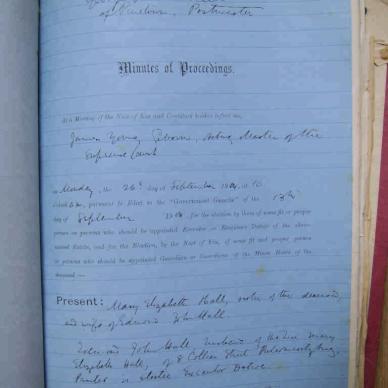 of Pinetown, Postmaster
Minutes of Proceedings.
At a Meeting of the Next of Kin and Creditors holden before me,
James Young Gibson, Acting Master of the
Supreme Court
on Monday, the 26th day of September 1904, at 10
o'clock a.m., pursuant to Edict in the "Government Gazette" of the 13th
day of September 1904, for the election by them of some fit or proper
person or persons who should be appointed Executor or Executors Dative of the above-
named Estate, and for the Election, by the Next of Kin, of some fit and proper person
or persons who should be appointed Guardian or Guardians of the Minor Heirs of the
deceased :—
Present: Mary Elizabeth Hall, of the deceased,
and wife of Edwin John Hall.
Edwin John Hall, husband of the Mary
Elizabeth Hall, of 8 Street Pietermaritzburg,
Printer is elected Executor Dative